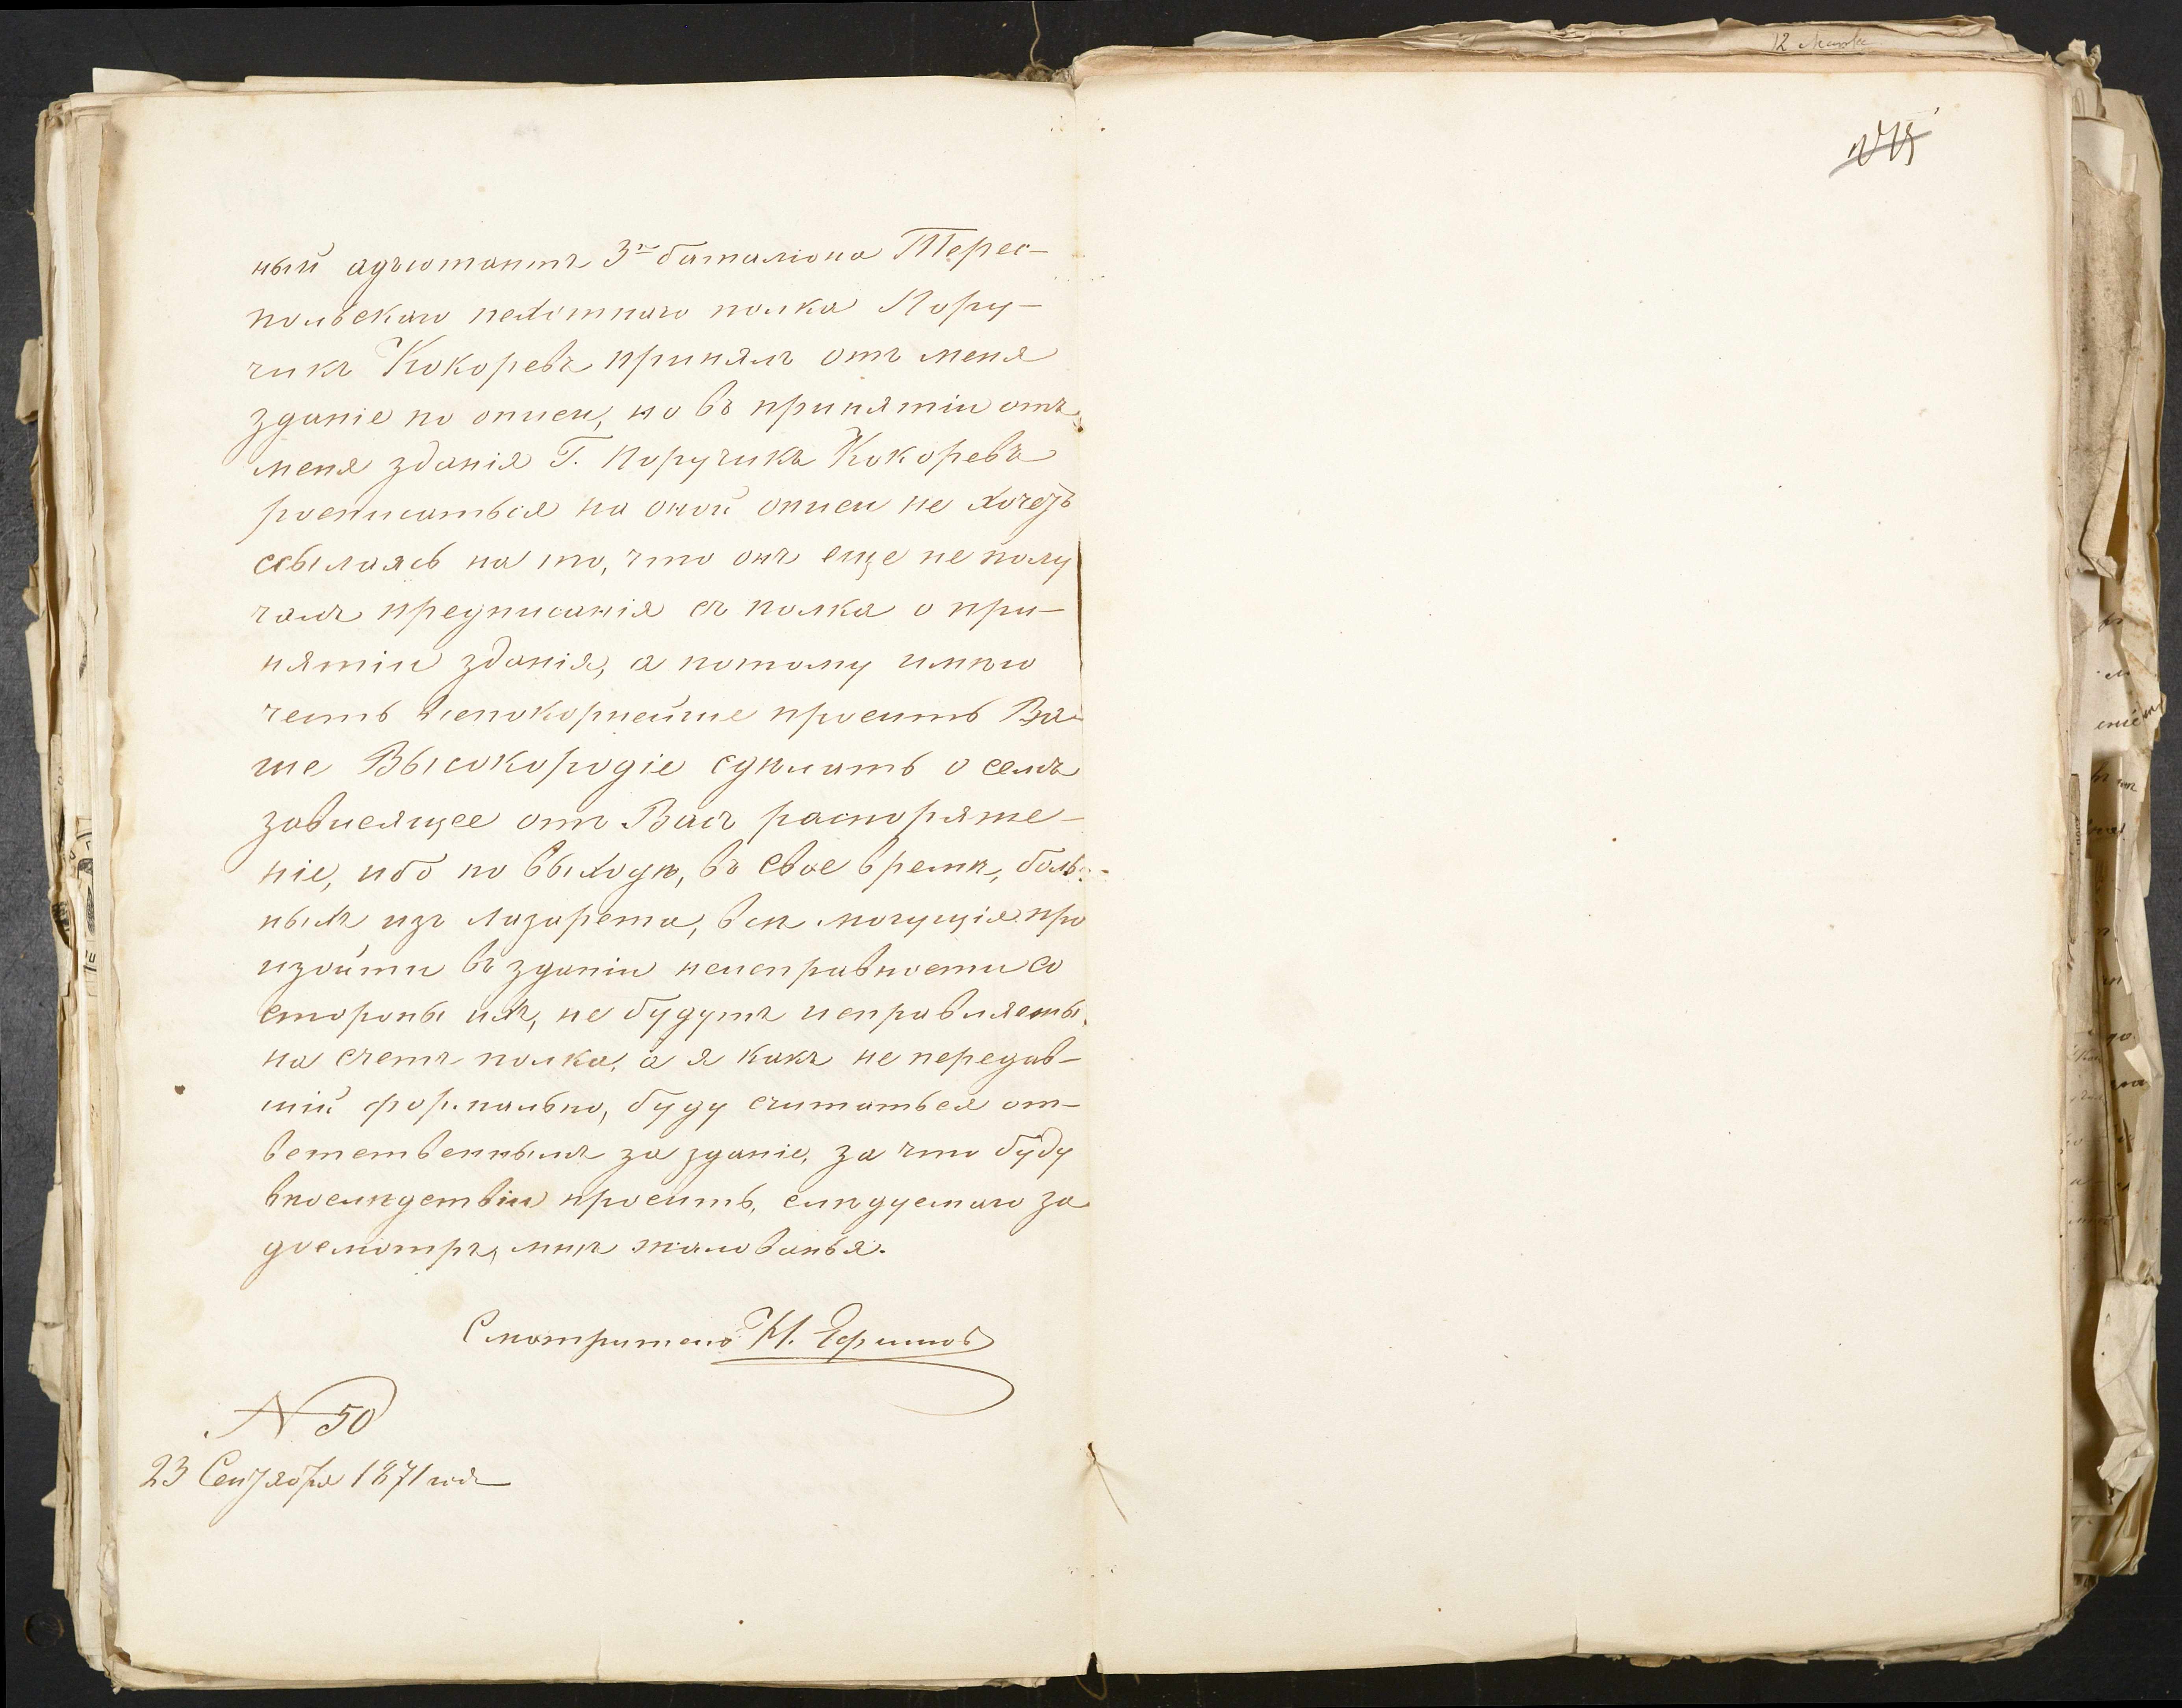 12 Марта
ный адъютантъ 3го баталіона Терес-
польскаго пехотнаго полка Пору-
чикъ Кокоревъ принялъ отъ меня
зданіе по описи, но въ принятіи отъ
меня зданія Г. Поручикъ Кокоревъ
росписаться на оной описи не хочетъ
ссылаясь на то, что онъ еще не полу
чалъ предписанія съ полка о при-
нятіи зданія, а потому имѣю
честь всепокорнейше просить Ва-
ше Высокородіе сдѣлать о семъ
зависящее отъ Васъ распоряже-
ніе, ибо по выходѣ, въ свое время, боль-
ныхъ изъ лазарета, всѣ могущія про
изойти въ зданіи неисправности со
стороны ихъ, не будутъ исправляемы
на счетъ полка, а я какъ не передав-
шій формально, буду считаться от-
ветственнымъ за зданіе, за что буду
впослѣдствіи просить, слѣдуемаго за
досмотръ, мнѣ жалованья.
Смотритель Н. Ефимов
№ 50
23 Сентября 1871 года